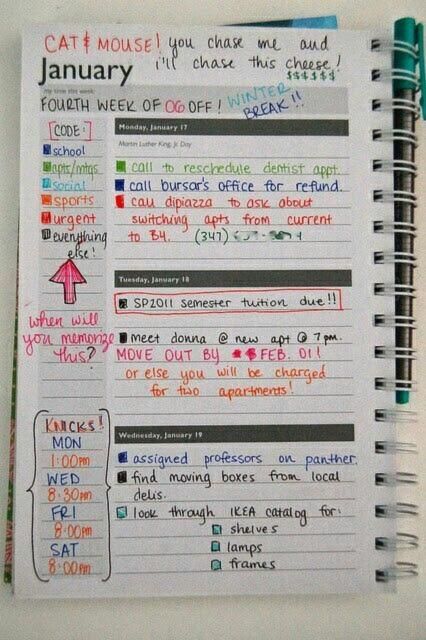 CAT & MOUSE! you chase me and
i'll chase this cheese!
$$$$$$
January
my time this week:
FOURTH WEEK OF OG OFF! WINTER
BREAK!!
[CODE:]
school
apts/mtgs
social
sports
urgent
everything
else!
when will
you memorize
this?
KNICKS!
MON
1:00pm
WED
8:30pm
FRI
8:00pm
SAT
8:00pm
Monday, January 17
Martin Luther King, Jr. Day
call to reschedule dentist appt.
call bursar's office for refund.
call dipiazza to ask about
switching apts from current
to B4. (347)
Tuesday, January 18
SP2011 semester tuition due!!
meet donna @ new apt @ 7pm.
MOVE OUT BY FEB. 01!
or else you will be charged
for two apartments!
Wednesday, January 19
assigned professors on panther.
find moving boxes from local
delis.
look through IKEA catalog for:
shelves
lamps
frames